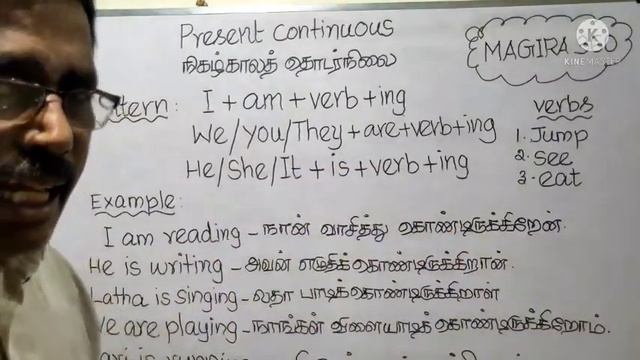 Present Continuous
நிகழ்காலத் தொடர்நிலை
MAGIRA
KINEMASTER
I + am + verb + ing
We/You/They + are + verb + ing
He/She/It + is + verb + ing
verbs
1. Jump
2. see
3. eat
Example:
I am reading - நான் வாசித்து கொண்டிருக்கிறேன்.
He is writing - அவன் எழுதிக் கொண்டிருக்கிறான்.
Latha is singing - லதா பாடிக் கொண்டிருக்கிறாள்
We are playing - நாங்கள் விளையாடிக் கொண்டிருக்கிறோம்.